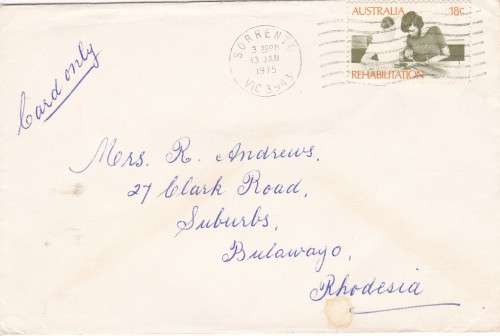 Card only
SORRENTO
3 30PM
13 JAN
1975
VIC 3943
AUSTRALIA 18c
REHABILITATION
Mrs. R. Andrews.
27 Clark Road,
Suburbs,
Bulawayo,
Rhodesia